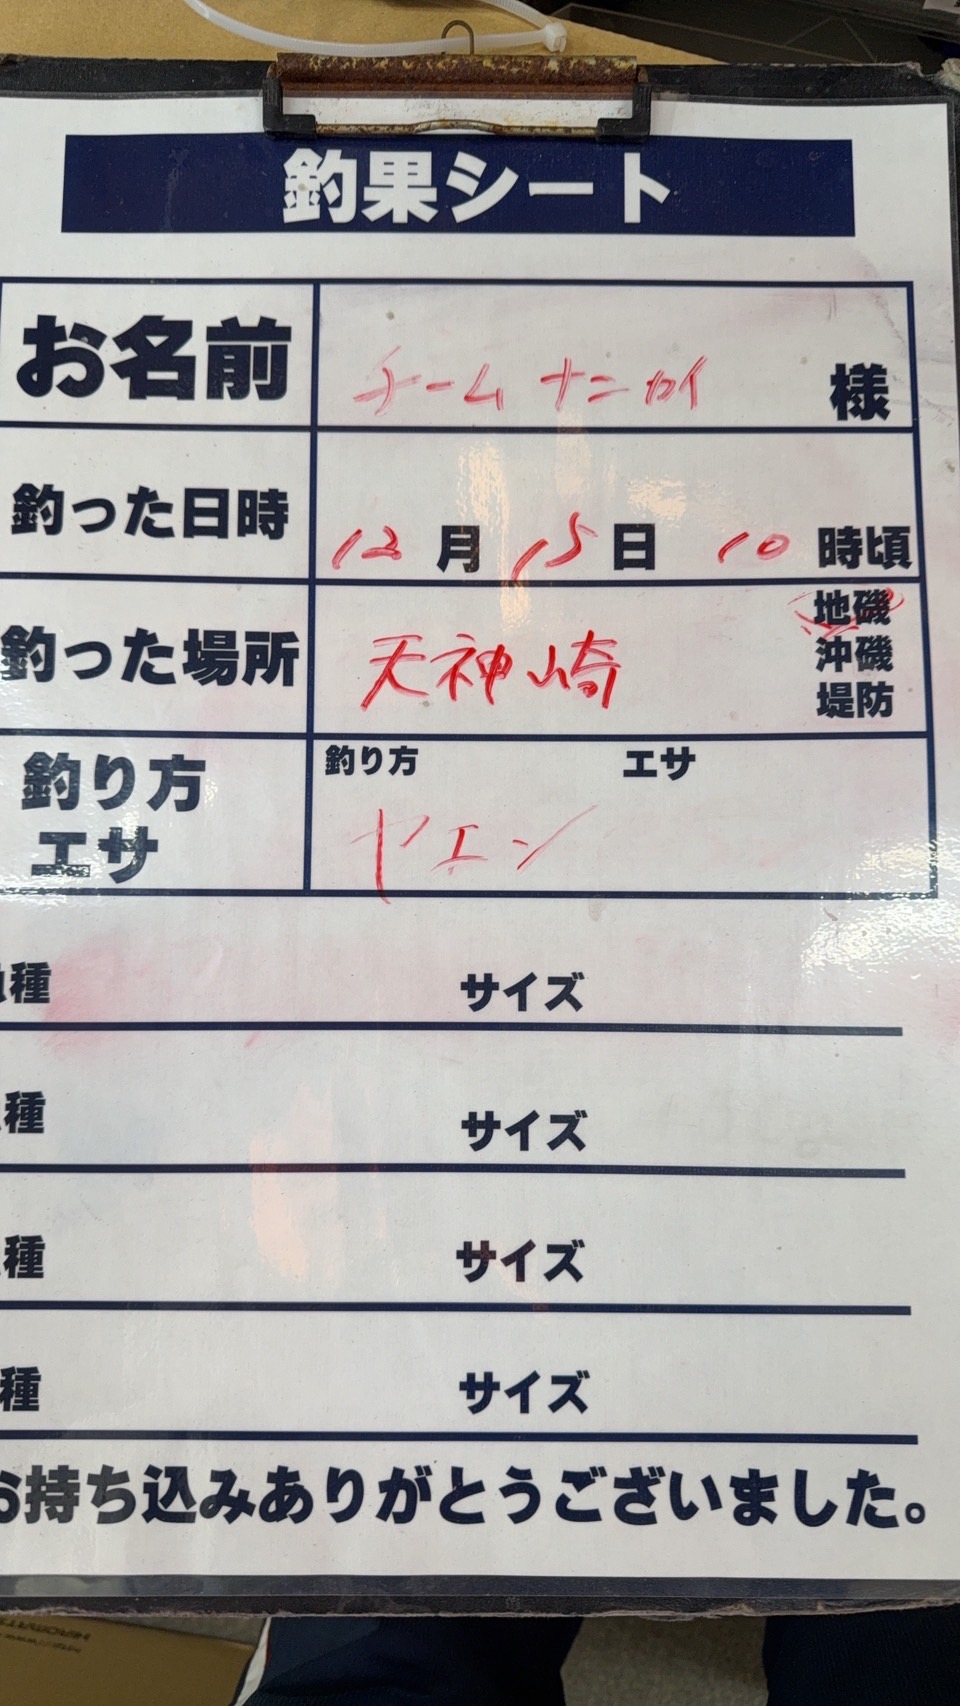 釣果シート
お名前 チームナンカイ 様
釣った日時 12月15日 10時頃
釣った場所 天神崎 地磯
沖磯
堤防
釣り方 釣り方 エサ
エサ ヤエン
種 サイズ
種 サイズ
種 サイズ
種 サイズ
お持ち込みありがとうございました。